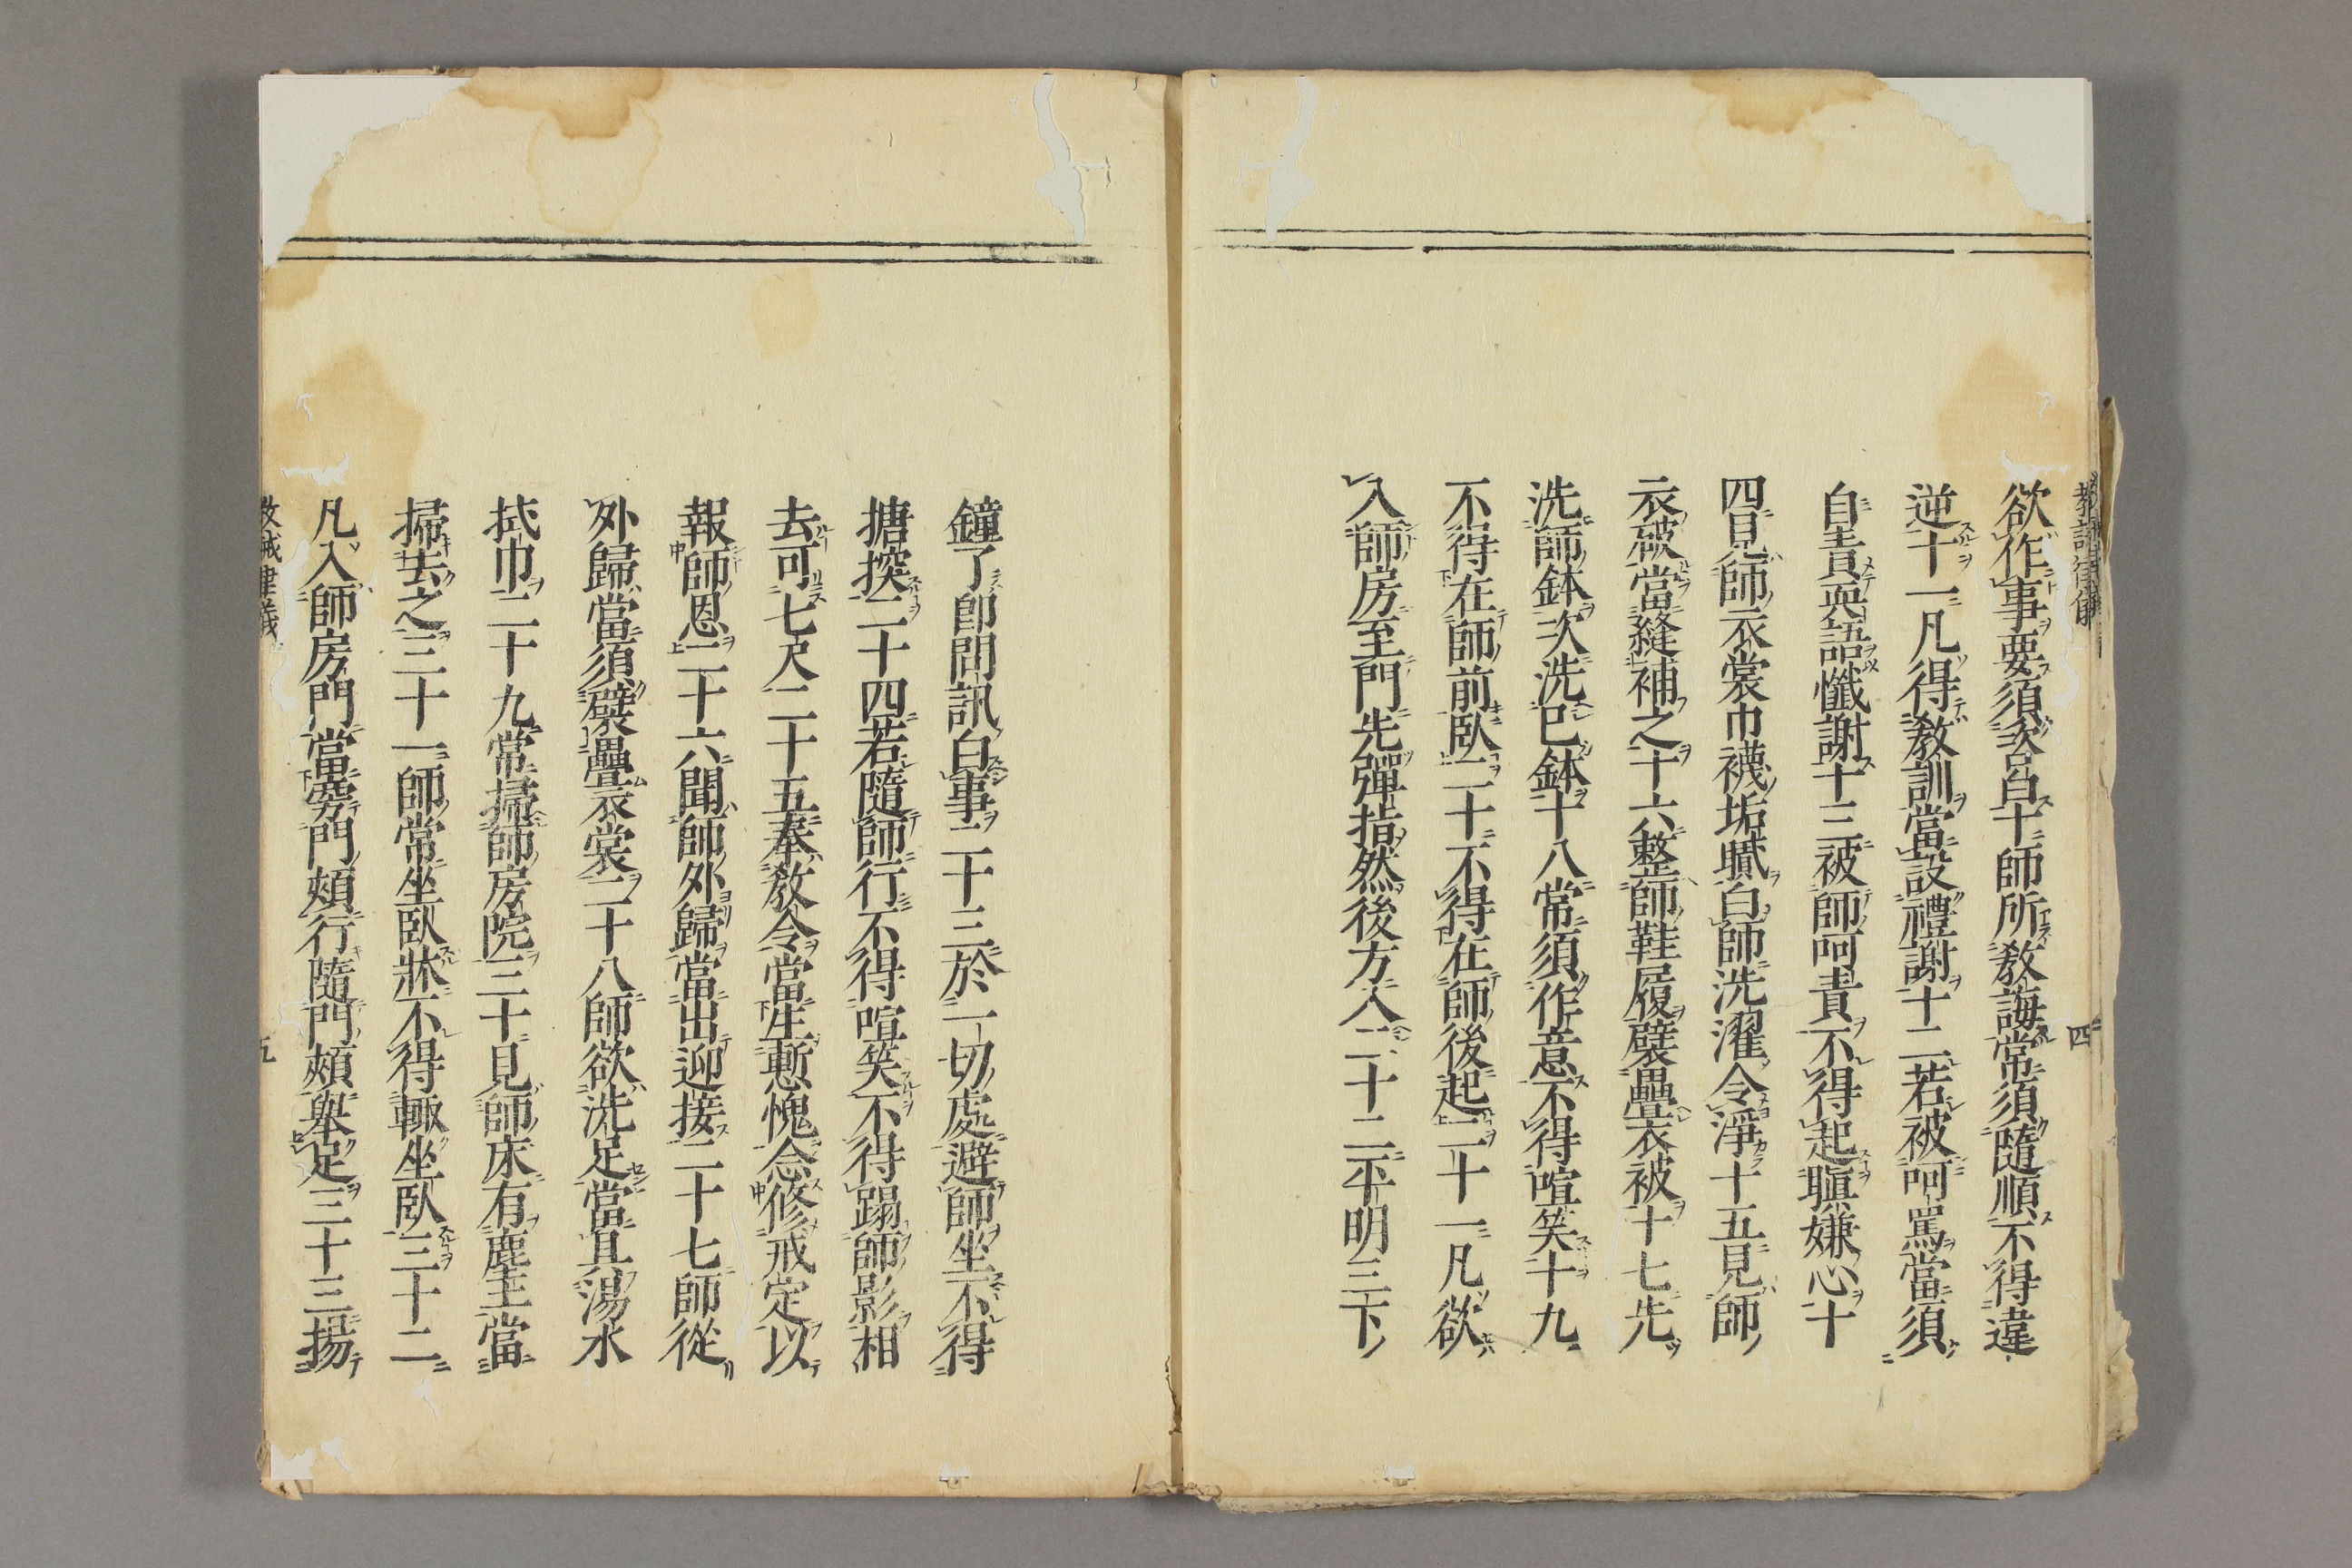 教誡律儀
四
欲作事要須咨白十師所教誨常須隨順不得違
逆十一凡得教訓當設禮謝十二若被呵罵當須
自責耎語懺謝十三被師呵責不得起瞋嫌心十
四見師衣裳巾襪垢膩白師洗濯令淨十五見師
衣破當縫補之十六整師鞋履襞疊衣被十七先
洗師鉢次洗已鉢十八常須作意不得喧笑十九
不得在師前臥二十不得在師後起二十一凡欲
入師房至門先彈指然後方入二十二平明三下
鐘了卽問訊白事二十三於一切處避師坐不得
搪揬二十四若隨師行不得喧笑不得蹋師影相
去可七尺二十五奉教令當生慙愧念修戒定以
報師恩二十六聞師外歸當出迎接二十七師從
外歸當須襞疊衣裳二十八師欲洗足當具湯水
拭巾二十九常掃師房院三十見師床有塵土當
掃去之三十一師常坐臥牀不得輙坐臥三十二
凡入師房門當旁門頰行隨門頰舉足三十三揚
教誡律儀
五